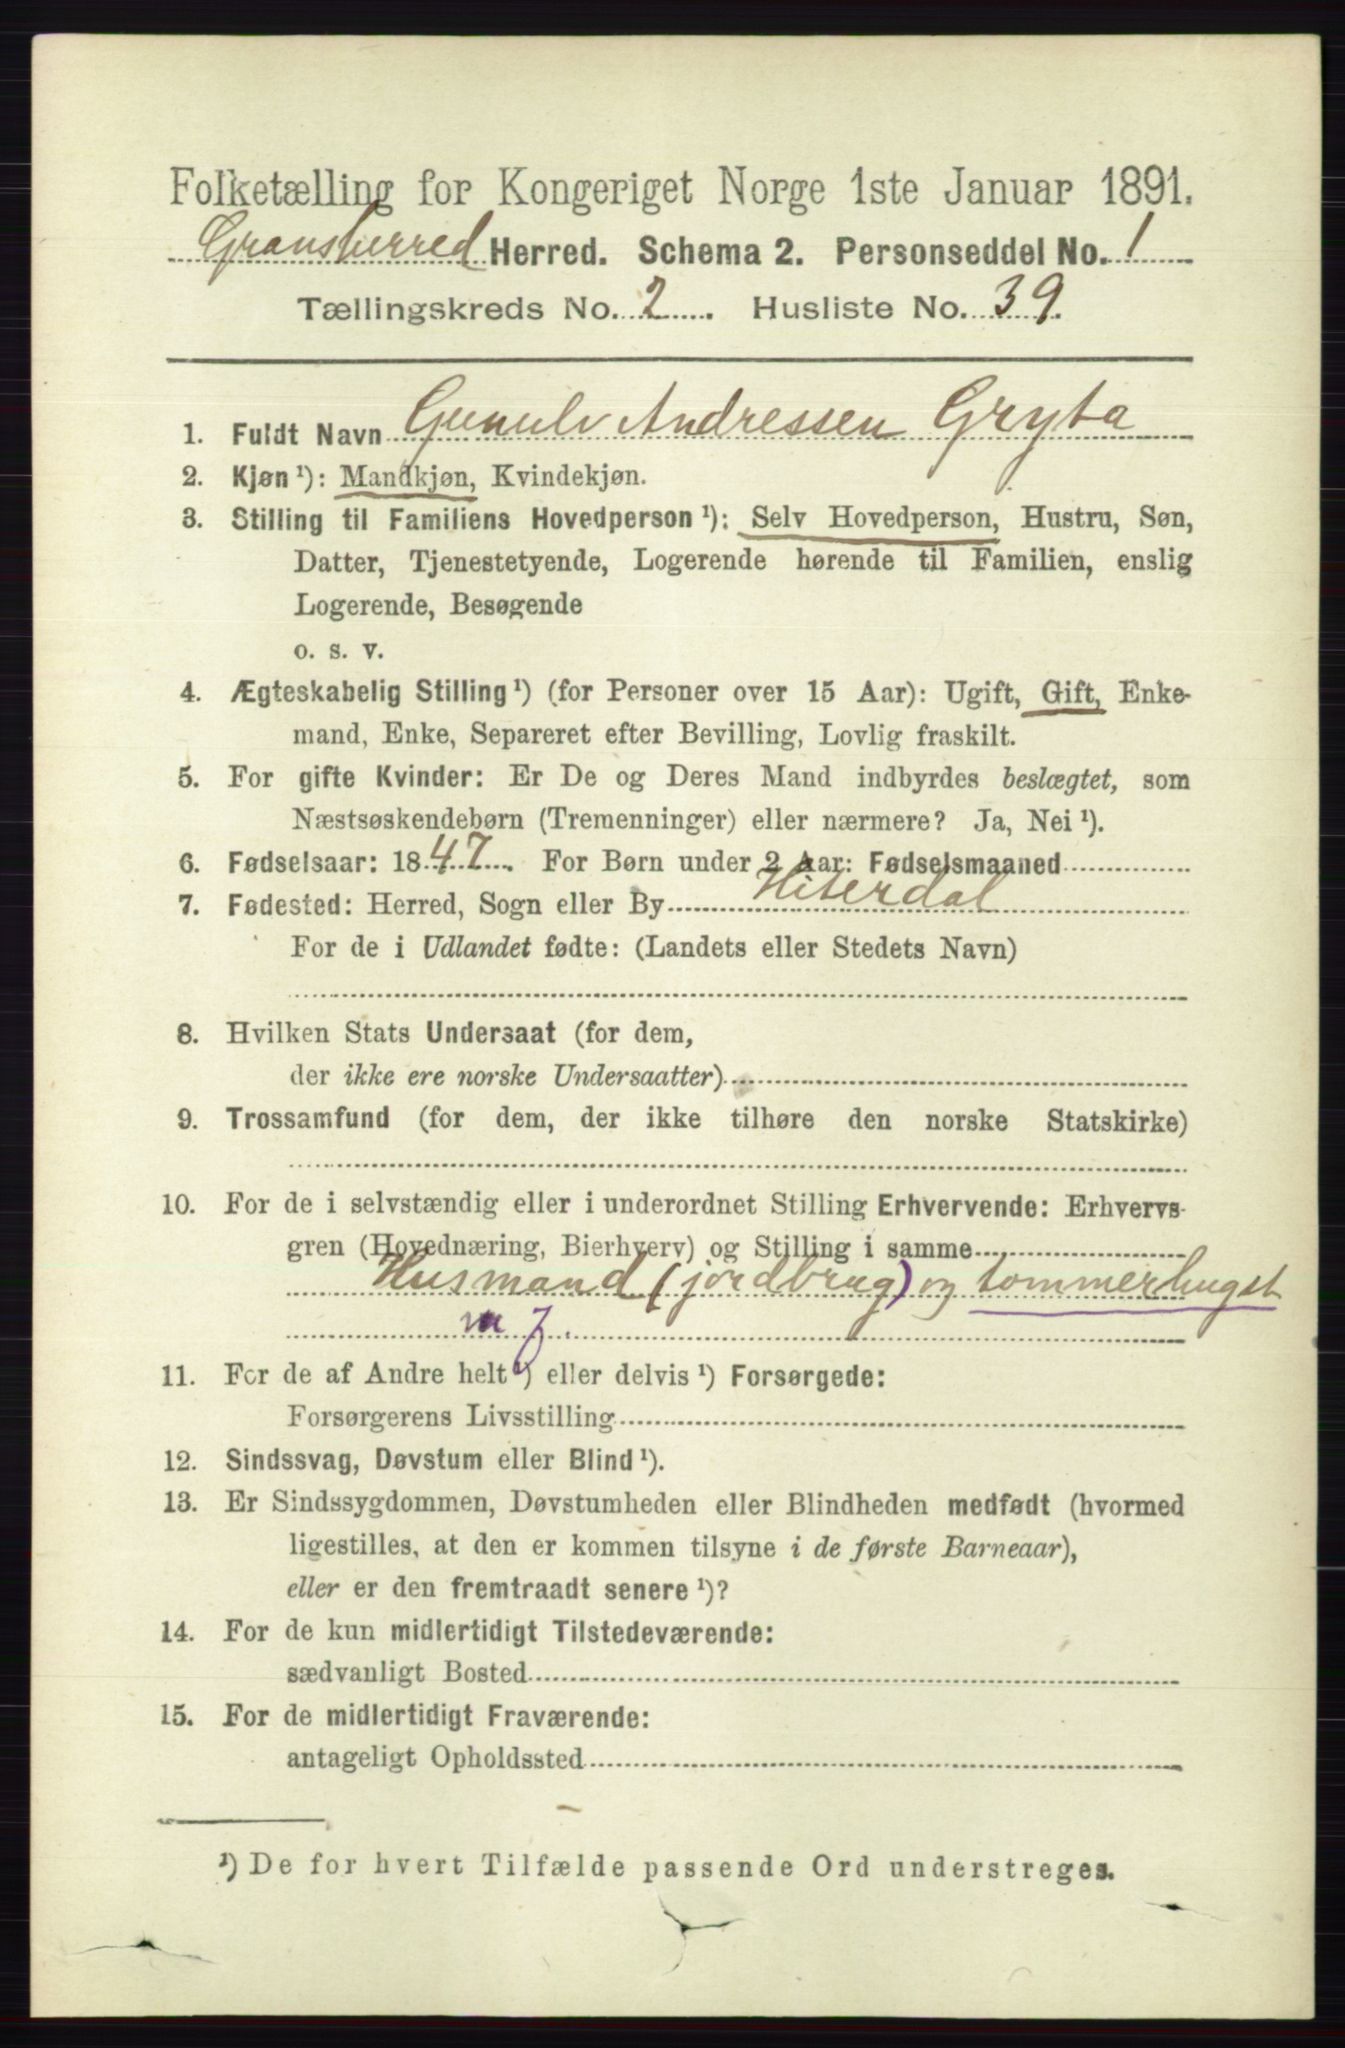 Folketælling for Kongeriget Norge 1ste Januar 1891.
Gransherred Herred. Schema 2. Personseddel No. 1
Tællingskreds No. 2. Husliste No. 39.
1. Fuldt Navn Gunulv Andressen Gryta
2. Kjøn ¹): Mandkjøn, Kvindekjøn.
3. Stilling til Familiens Hovedperson ¹): Selv Hovedperson, Hustru, Søn,
Datter, Tjenestetyende, Logerende hørende til Familien, enslig
Logerende, Besøgende
o. s. v.
4. Ægteskabelig Stilling ¹) (for Personer over 15 Aar): Ugift, Gift, Enke-
mand, Enke, Separeret efter Bevilling, Lovlig fraskilt.
5. For gifte Kvinder: Er De og Deres Mand indbyrdes beslægtet, som
Næstsøskendebørn (Tremenninger) eller nærmere? Ja, Nei ¹).
6. Fødselsaar: 1847. For Børn under 2 Aar: Fødselsmaaned
7. Fødested: Herred, Sogn eller By Hiterdal
For de i Udlandet fødte: (Landets eller Stedets Navn)
8. Hvilken Stats Undersaat (for dem,
der ikke ere norske Undersaatter)
9. Trossamfund (for dem, der ikke tilhøre den norske Statskirke)
10. For de i selvstændig eller i underordnet Stilling Erhvervende: Erhvervs-
gren (Hovednæring, Bierhverv) og Stilling i samme
Husmand (jordbrug) og tommerhugst
m J.
11. For de af Andre helt ¹) eller delvis ¹) Forsørgede:
Forsørgerens Livsstilling
12. Sindssvag, Døvstum eller Blind ¹).
13. Er Sindssygdommen, Døvstumheden eller Blindheden medfødt (hvormed
ligestilles, at den er kommen tilsyne i de første Barneaar),
eller er den fremtraadt senere ¹)?
14. For de kun midlertidigt Tilstedeværende:
sædvanligt Bosted
15. For de midlertidigt Fraværende:
antageligt Opholdssted
¹) De for hvert Tilfælde passende Ord understreges.